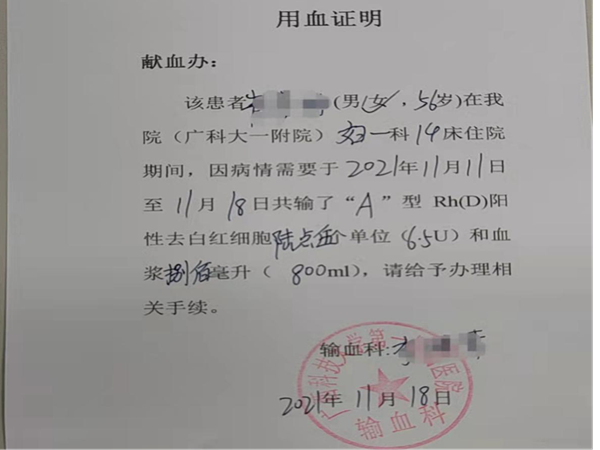 用血证明
献血办:
该患者(男/女,56岁)在我
院(广科大一附院)妇一科14床住院
期间,因病情需要于2021年11月11日
至11月18日共输了“A”型 Rh(D)阳
性去白红细胞陆点伍个单位(6.5U)和血
浆捌佰毫升( 800ml),请给予办理相
关手续。
输血科:
2021年11月18日
输血科